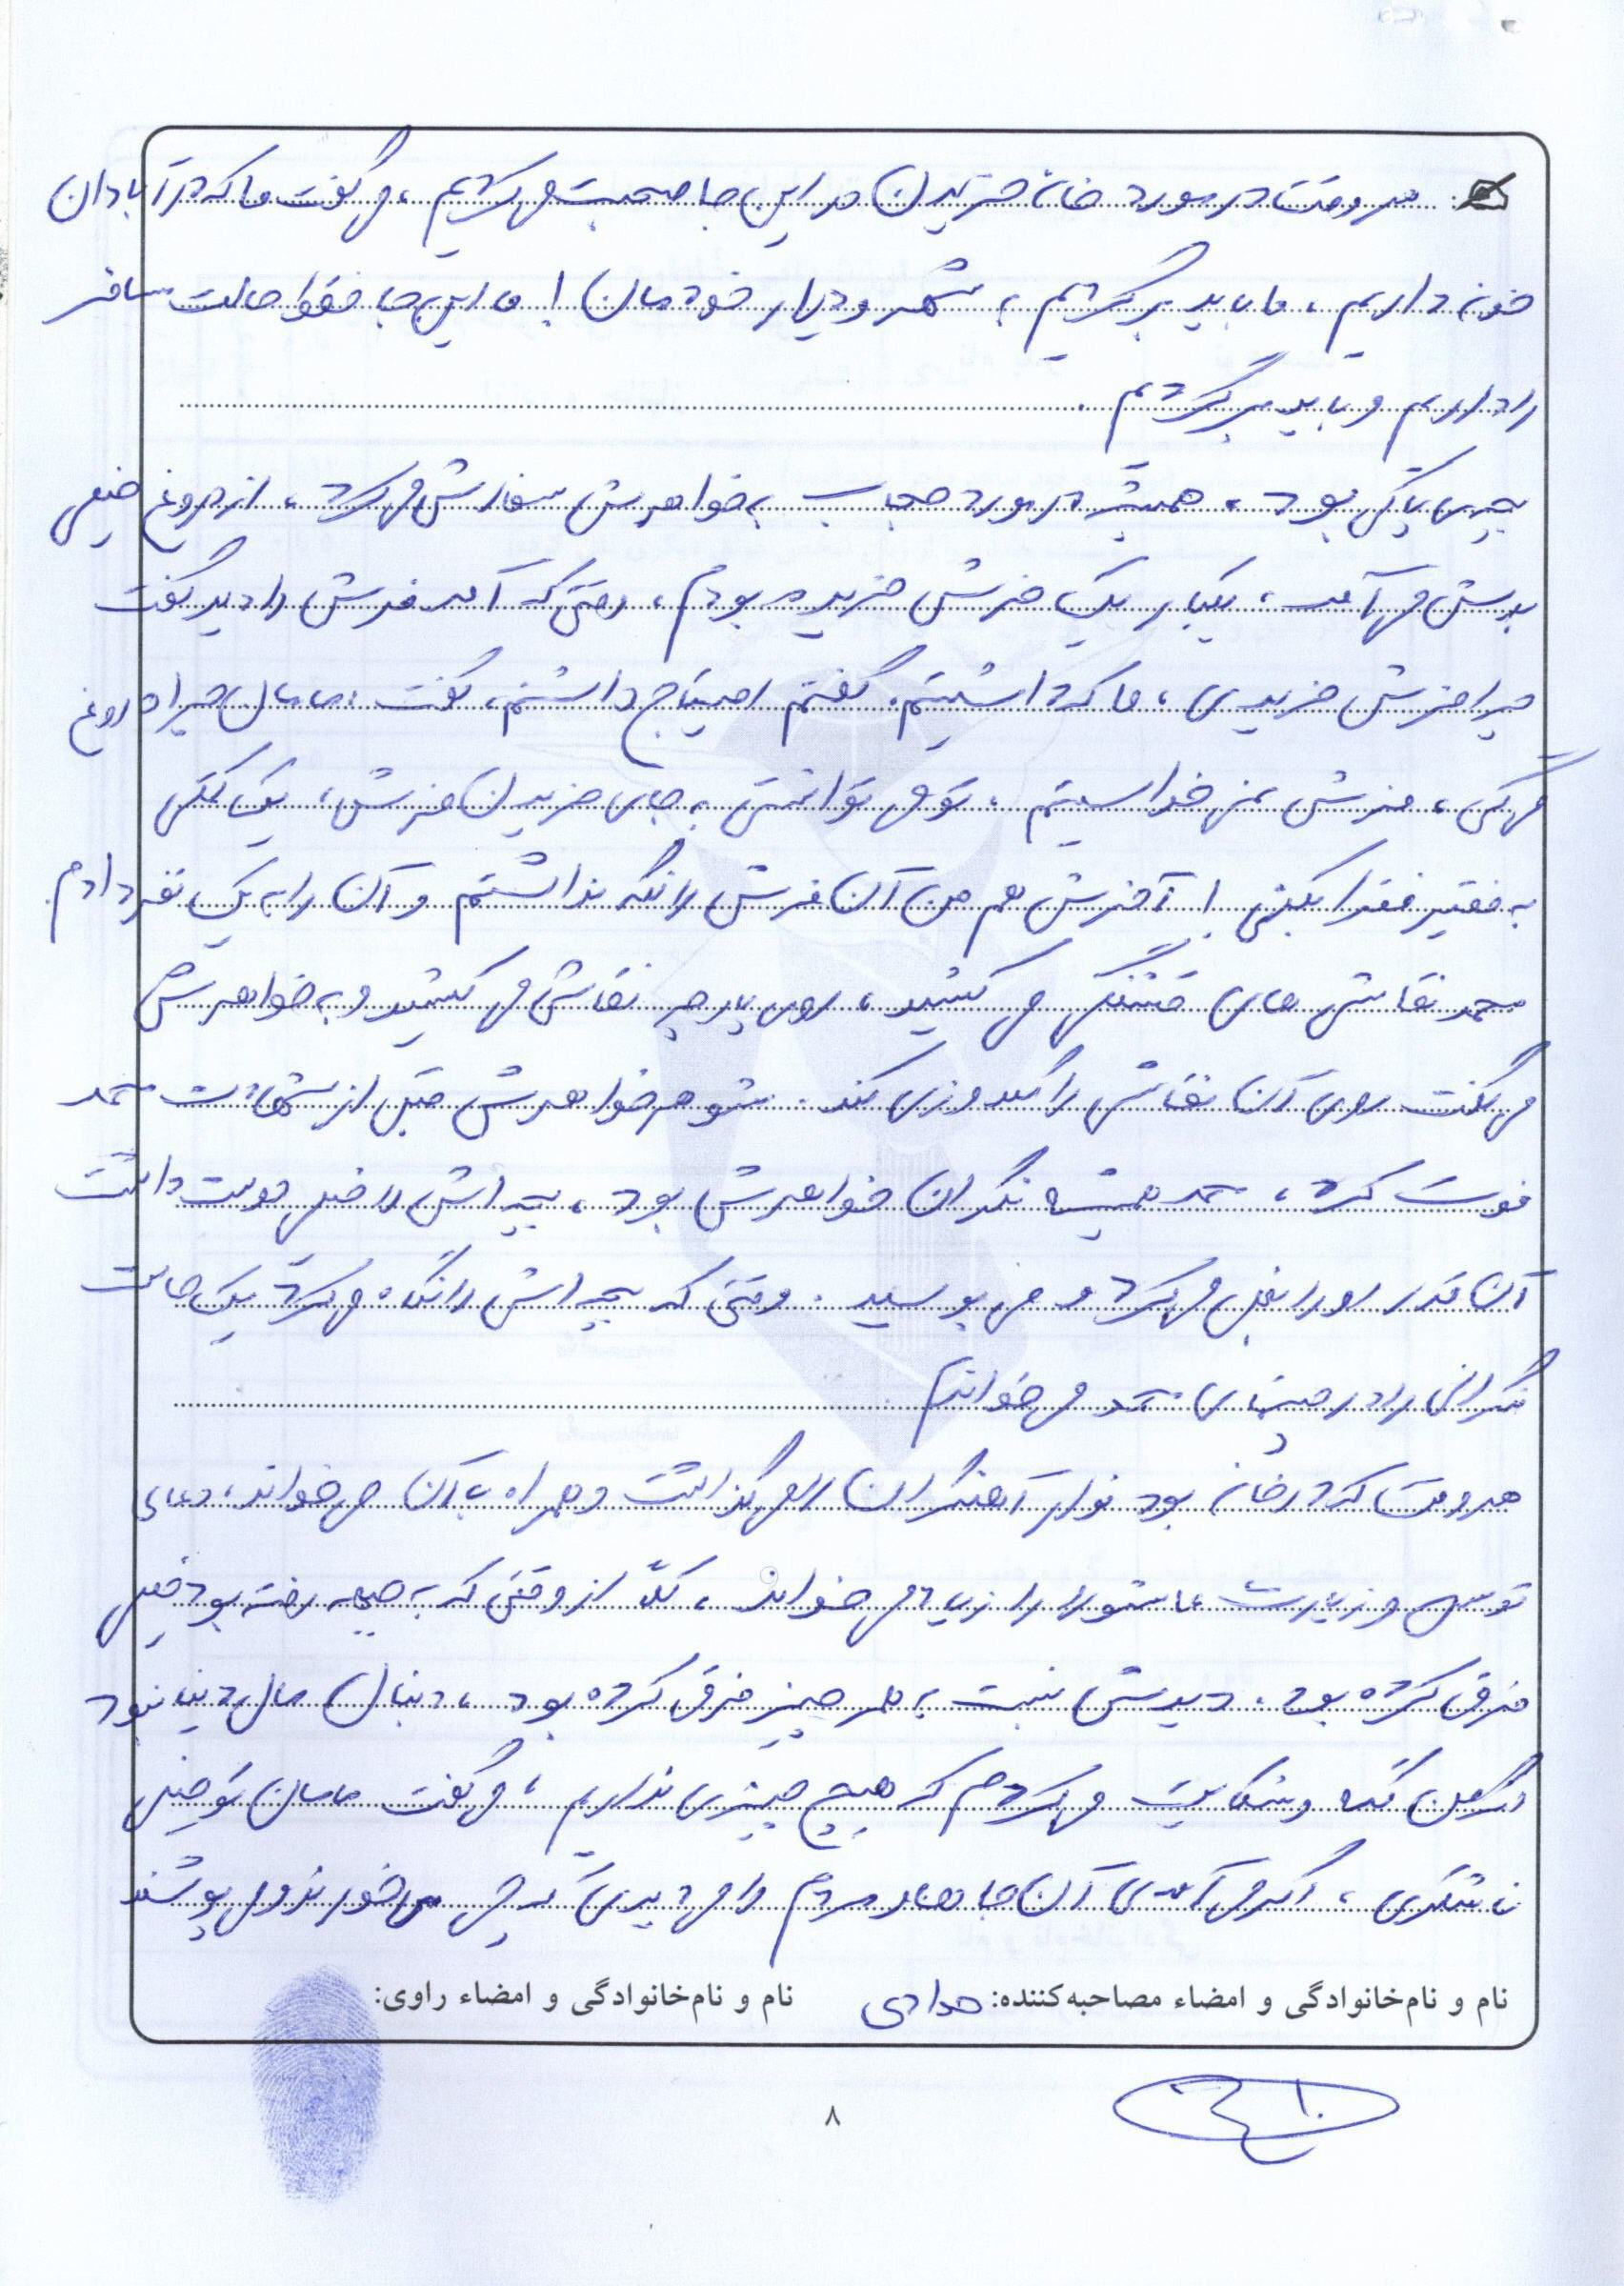 هر وقت در مورد خانه خریدن در این جا صحبت می کردیم، می گفت ما که در آبادان
خونه داریم، ما باید برگردیم به شهر و دیار خودمان! ما این جا فقط حالت مسافر
را داریم و باید برگردیم.
بچه ی پاکی بود، همیشه در مورد حجاب به خواهرش سفارش می کرد، از دروغ خیلی
بدش می آمد، یکبار یک فرش خریده بودم، وقتی که آمد فرش را دید گفت
چرا فرش خریدی، ما که داشتیم. گفتم احتیاج داشتم، گفت مامان چرا دروغ
می گی، فرش نمی خواستیم، تو می توانستی به جای خریدن فرش، یک کمکی
به فقیر فقرا بکنی! آخرش هم من آن فرش را نگه نداشتم و آن را به یک نفر دادم.
محمد نقاشی های قشنگی می کشید، روی پارچه نقاشی می کشید و به خواهرش
می گفت روی آن نقاشی را گلدوزی کند. شوهر خواهرش قبل از شهادت محمد
فوت کرد، محمد همیشه نگران خواهرش بود، بچه اش را خیلی دوست داشت
آن قدر او را بغل می کرد و می بوسید. وقتی که بچه اش را نگاه می کرد یک حالت
نگرانی را در چشمای محمد می خواندم
هر وقت که در خانه بود نوار آهنگران را می گذاشت و همراه با آن می خواند، دعای
توسل و زیارت عاشورا را زیاد می خواند، کلاً از وقتی که به جبهه رفته بود خیلی
فرق کرده بود، دیدش نسبت به همه چیز فرق کرده بود، دنبال مال دنیا نبود
اگر من گله و شکایت می کردم که هیچ چیزی نداریم، می گفت مامان تو خیلی
ناشکری، اگر می آمدی آن جاها و مردم را می دیدی که چی می خورند و می پوشند
نام و نام‌خانوادگی و امضاء مصاحبه‌کننده: مدادی نام و نام‌خانوادگی و امضاء راوی:
۸